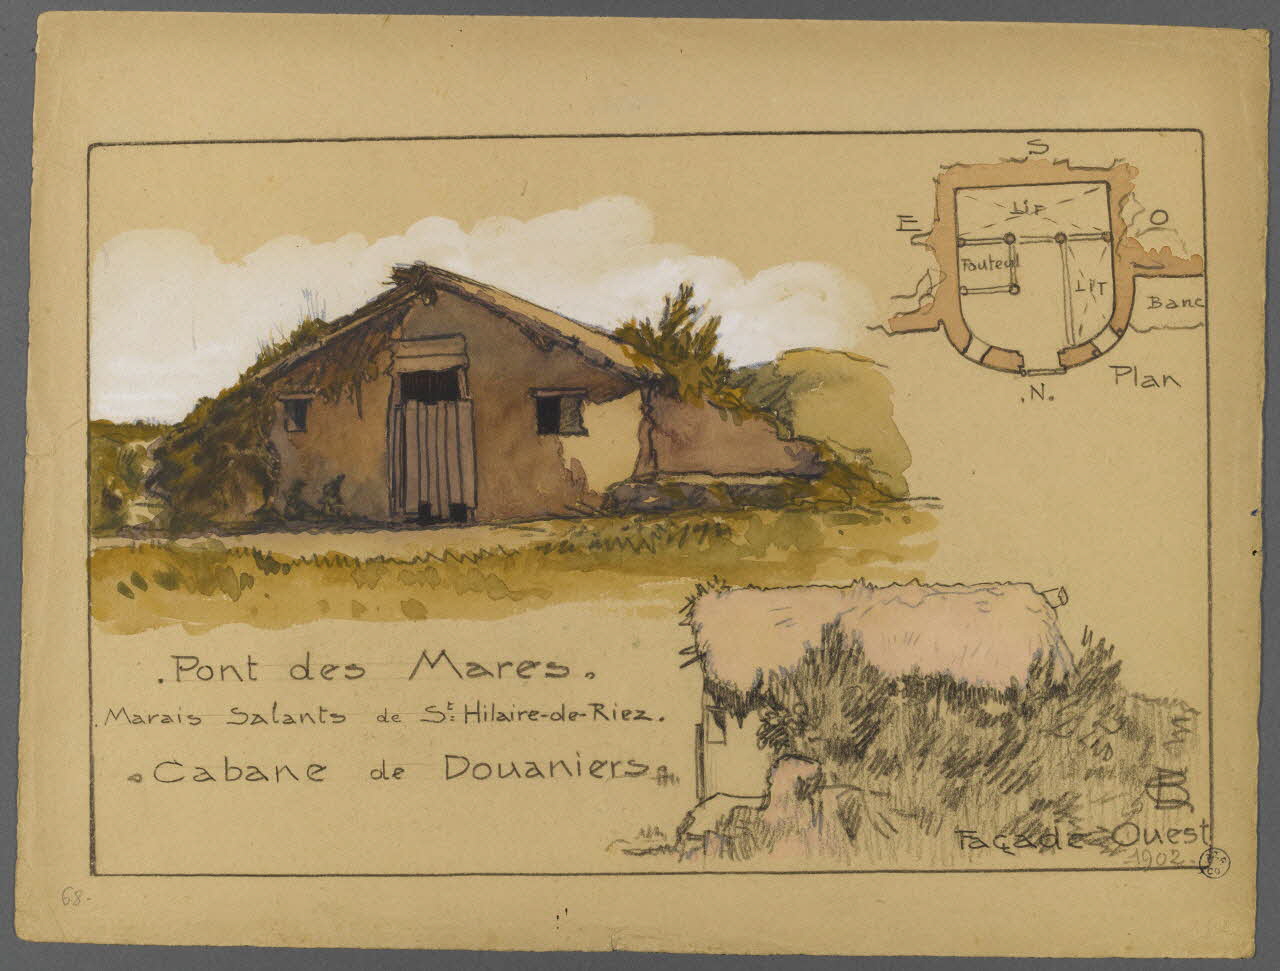 S
E
O
Lit
Fauteuil
Lit
Banc
.N.
Plan
.Pont des Mares.
.Marais Salants de St Hilaire-de-Riez.
Cabane de Douaniers
Façade Ouest
1902.
68.